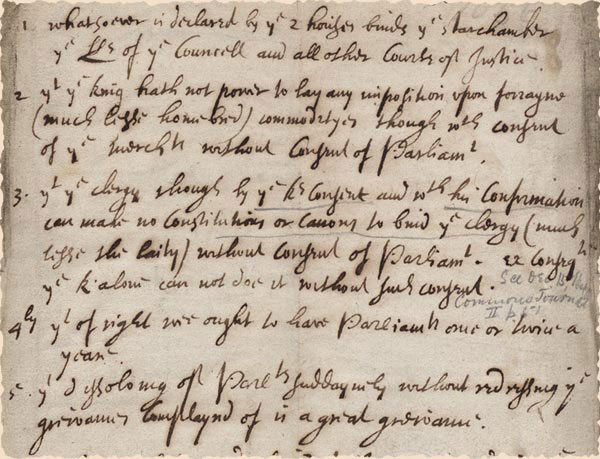 1 whatsoever is declared by yᵉ 2 houses binds yᵉ starchamber
yᵉ LLs of yᵉ Councell and all other Courts of Justice.
2 yᵗ yᵉ king hath not power to lay any imposition upon forrayne
(much lesse homebred) commodityes though wᵗʰ consent
of yᵉ merchᵗˢ without Consent of Parliamᵗ.
3. yᵗ yᵉ clergy though by yᵉ Ks Consent and wᵗʰ his Confirmation
can make no Constitutions or Canons to bind yᵉ clergy (much
lesse the laity) without consent of Parliamᵗ. ex conseqᵗⁱ
yᵉ K alone can not doe it without such consent.
See Dec 15
Commons Journal
II p.
4ˡʸ yᵗ of right wee ought to have Parliamᵗˢ one or twice a
yeare.
5. yᵗ dissolving of Parlᵗˢ suddaynely without redressing yᵉ
greivances Complaynd of is a great greivance.